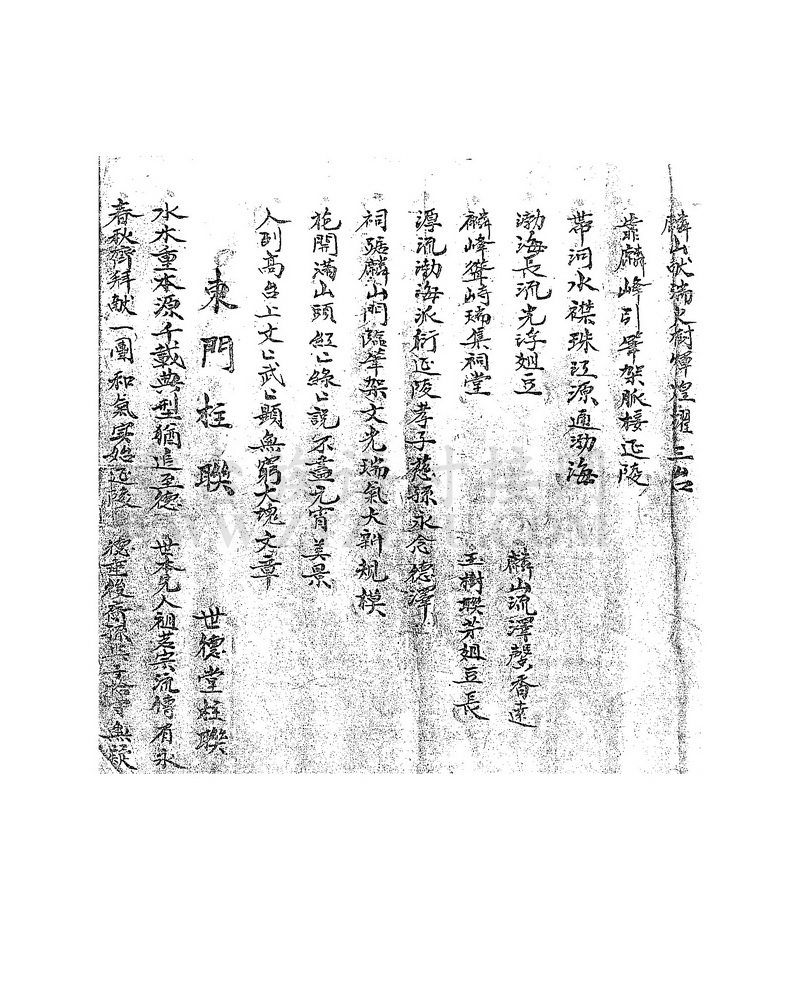 麟山献瑞文樹輝煌耀三台
靠麟峰引筆架脈接延陵
帶河水襟珠江源通渤海
渤海長流光浮俎豆
麟山流澤馨香遠
麟峰聳峙瑞集祠堂
玉樹聯芳俎豆長
溥流渤海派衍延陵孝子慈孫永念德澤
祠踞麟山門臨筆架文光瑞氣大新規模
花開滿山頭紅匕綠匕説不盡元宵美景
人到高台上文匕武匕顯無窮大塊文章
東門柱聯
世德堂柱聯
水木重本源千載典型猶追至德
世本先人祖若宗流傳有永
春秋齊拜献一團和氣実始延陵
德垂後裔孫無疑